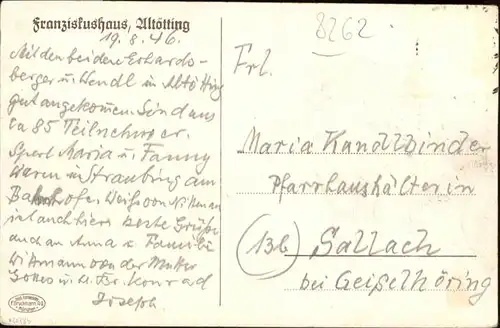 Franziskushaus, Altötting
19.8.46.
8262
Mit den beiden Erhards-
berger u. Wendl in Altötting
gut angekommen. Sind uns
ca 85 Teilnehmer.
Sperl Maria u. Fanny
waren in Straubing am
Bahnhofe. Weiß von
ist auch hier beste Grüße
auch an Anna u. Familie
Wittmann von der Mutter
u. Konrad
Joseph
Frl.
Maria Kandlbinder
Pfarrhaushälterin
(13b) Sallach
bei Geiselhöring